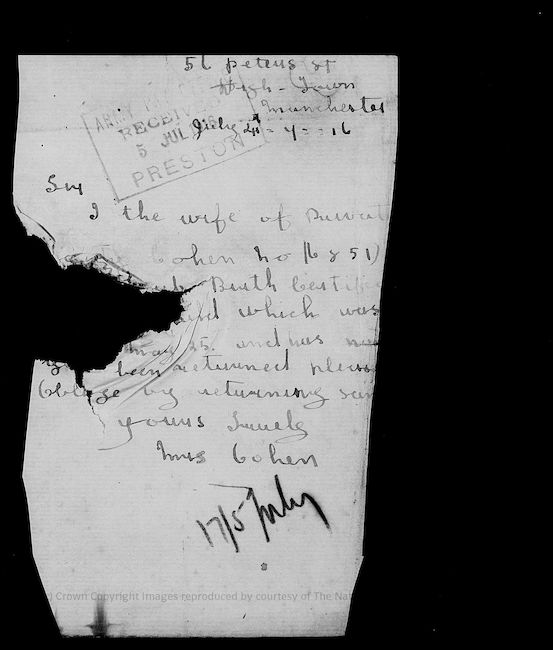 56 peters st
High-Town
Manchester
ARMY
RECEIVED
5 JUL
PRESTON
July 4th - 7 - 16
Sir
I the wife of Privat
Cohen no (6851)
Birth Certif
and which was
may 25. and has no
been returned pleas
Oblige by returning sam
yours Truely
Mrs Cohen
17/5 July
Crown Copyright Images reproduced by courtesy of The Nat